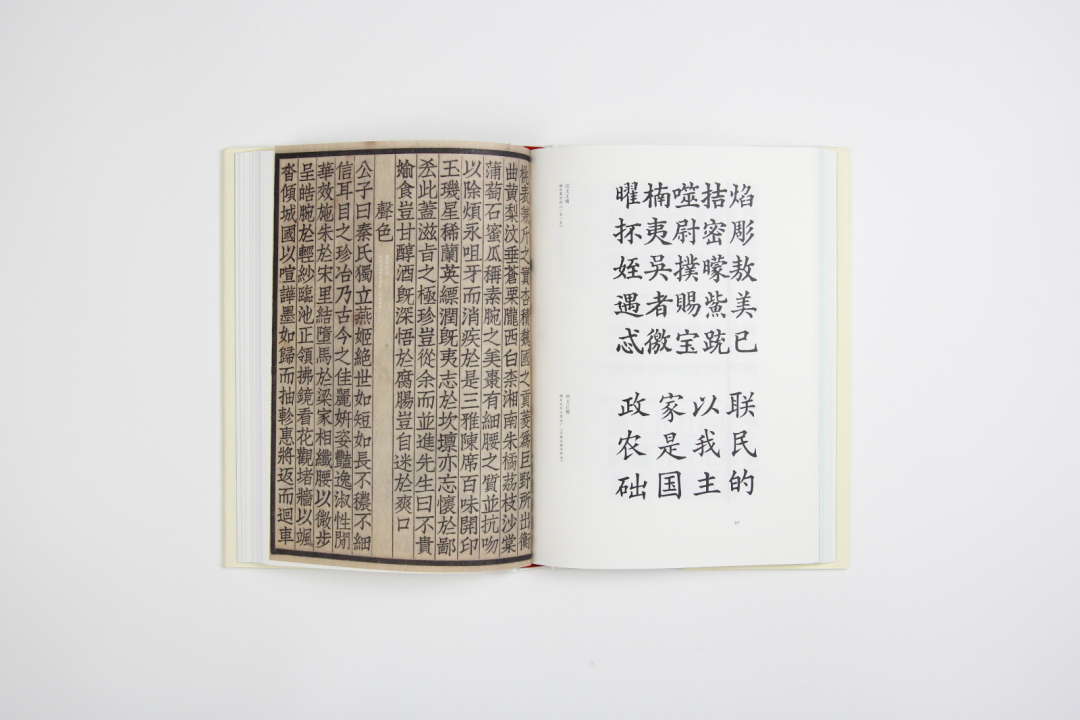 桃表兼斤之實杏積魏國之貢菱為巨野所出衡
曲黄梨汶垂蒼栗隴西白柰湘南朱橘荔枝沙棠
蒲萄石蜜瓜稱素腕之美棗有細腰之質並抗吻
以除煩永咀牙而消疾於是三雅陳席百味開印
玉璣星稀蘭英縹潤既夷志於坎壇亦忘懷於鄙
此蓋滋旨之極珍豈從余而並進先生曰不貴
媮食豈甘醇酒既深悟於腐腸豈自迷於爽口
聲色
公子曰秦氏獨立燕姬絕世如短如長不穠不細
信耳目之珍冶乃古今之佳麗妍姿豔逸淑性閒
華效施朱於宋里結墮馬於梁家相纖腰以微步
呈皓腕於輕紗臨池正領拂鏡看花觀堵牆以颯
沓傾城國以喧譁墨如歸而抽軫惠將返而迴車
焰彫敖美已
拮密曚觜䟽
噬尉撲賜宝
楠夷吳者微
曜抔姪遇忒
联民的
以我主
家是国
政农础